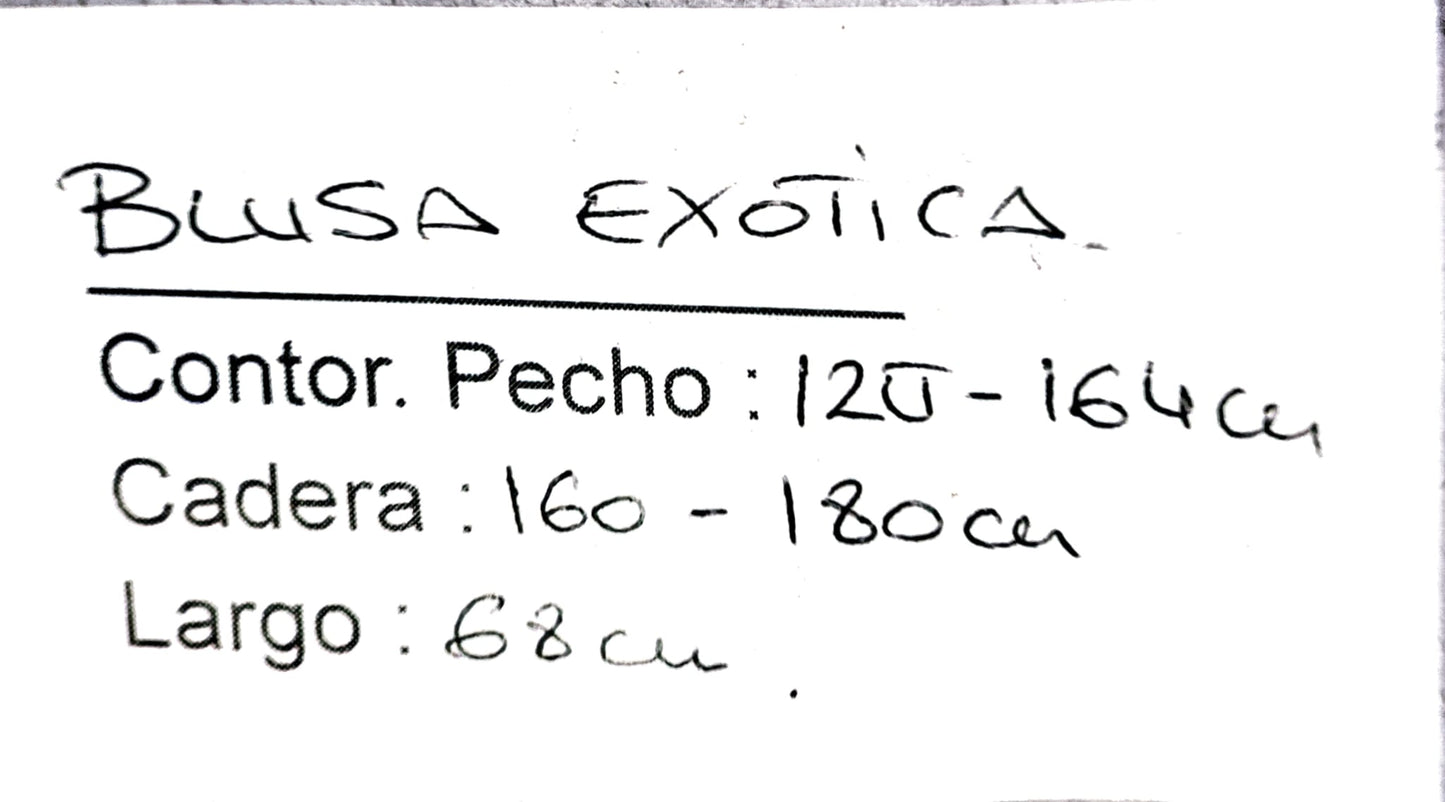 BLUSA EXÓTICA
Contor. Pecho : 120 - 164 cm
Cadera : 160 - 180 cm
Largo : 68 cm